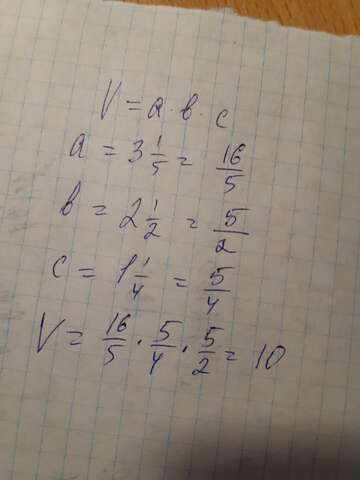 V = a · в · c
a = 3 1/5 = 16/5
в = 2 1/2 = 5/2
c = 1 1/4 = 5/4
V = 16/5 · 5/4 · 5/2 = 10